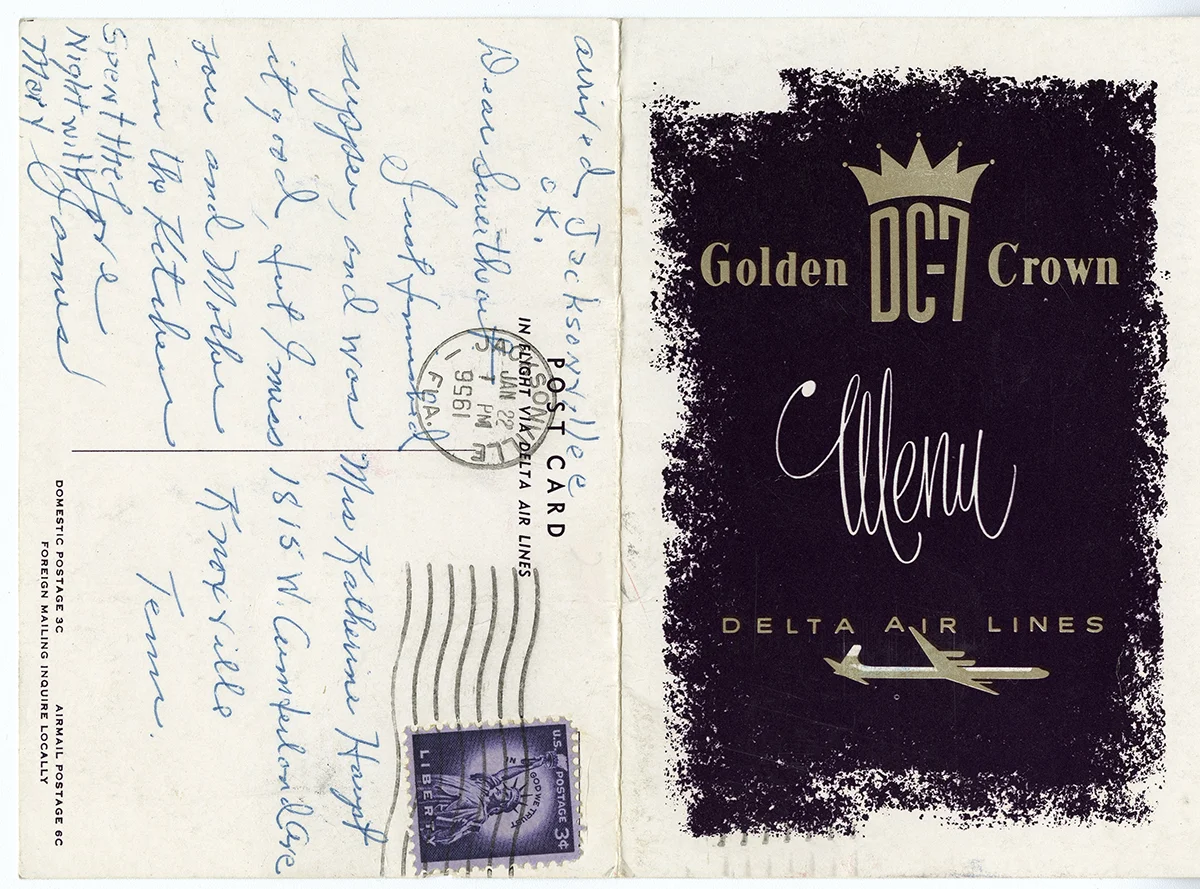 arrived Jacksonville
OK.
Dear Sweetheart
Just finished
supper, and was
it good, but I miss
you and Mother
in the Kitchen
Love
James
Spent the
Night with
Mary
POST CARD
IN FLIGHT VIA DELTA AIR LINES
JACKSONVILLE
JAN 22
PM
1956
FLA.
1
Mrs Katherine Haupt
1815 W. Cumberland Ave
Knoxville
Tenn.
U.S. POSTAGE 3¢
IN GOD WE TRUST
LIBERTY
DOMESTIC POSTAGE 3C AIRMAIL POSTAGE 6C
FOREIGN MAILING INQUIRE LOCALLY
Golden DC-7 Crown
Menu
DELTA AIR LINES